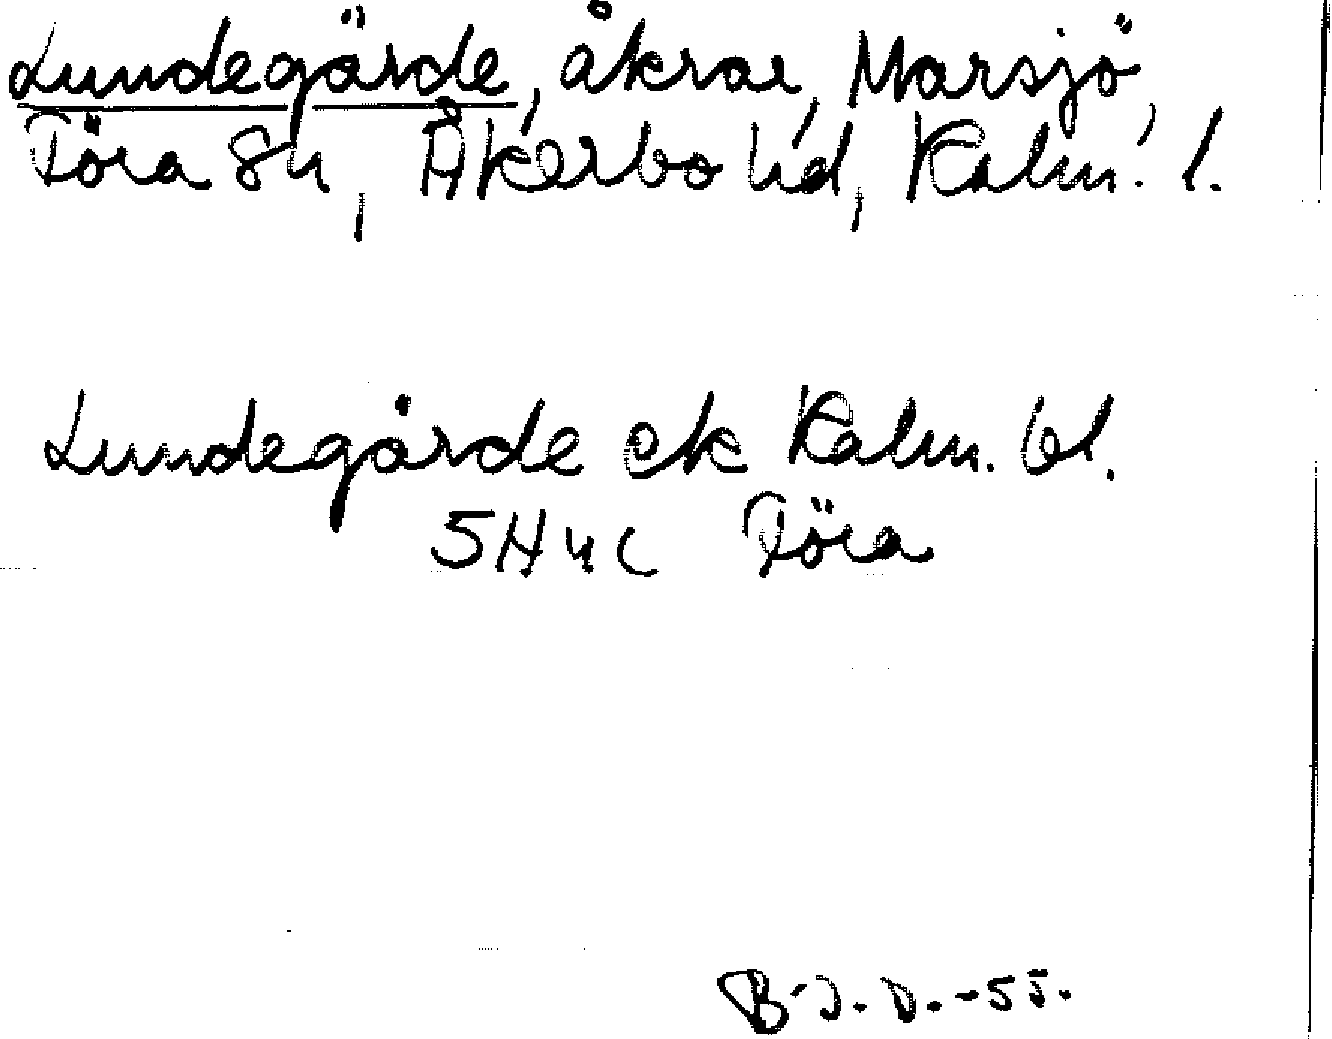 Lundegärde, åkrar, Marsjö,
Föra sn, Åkerbo hd, Kalm. l.
Lundegärde ek Kalm. bl.
5H4c Föra
B-J.D. -55.